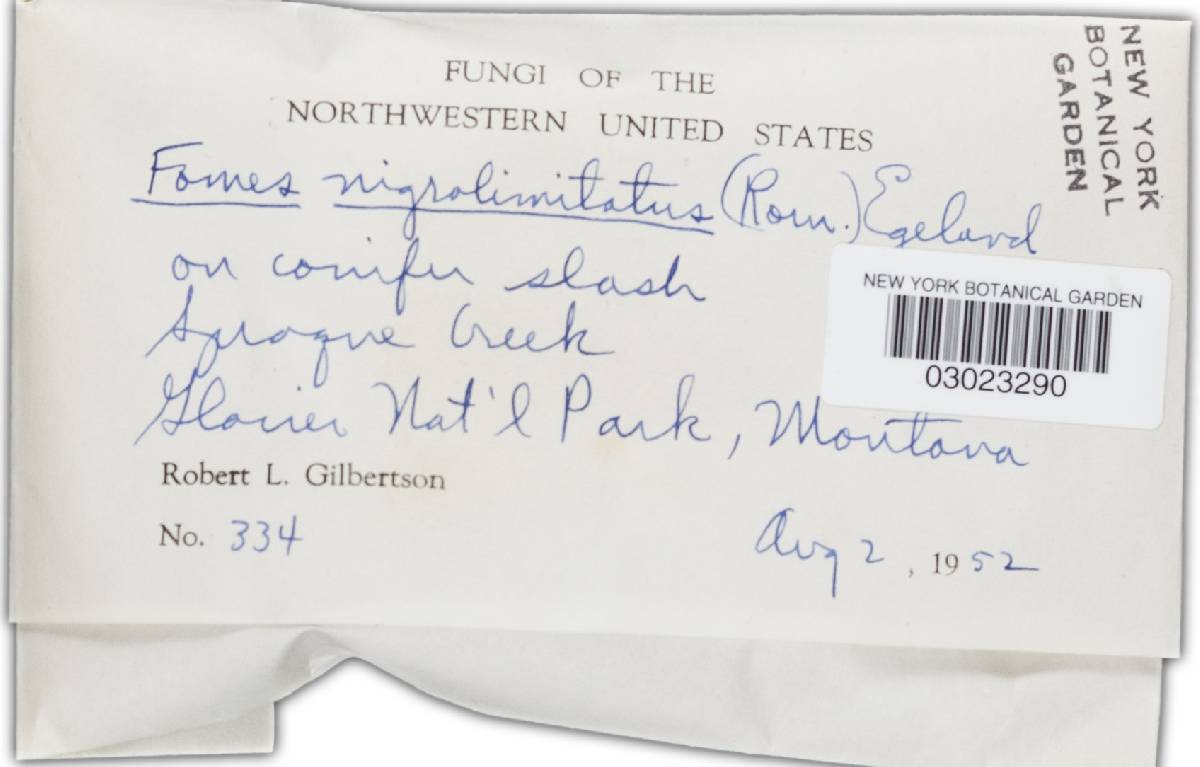 FUNGI OF THE
NORTHWESTERN UNITED STATES
NEW YORK
BOTANICAL
GARDEN
Fomes nigrolimitatus (Rom.) Egeland
on conifer slash
NEW YORK BOTANICAL GARDEN
03023290
Sprague Creek
Glacier Nat'l Park, Montana
Robert L. Gilbertson
No. 334
Aug 2, 1952